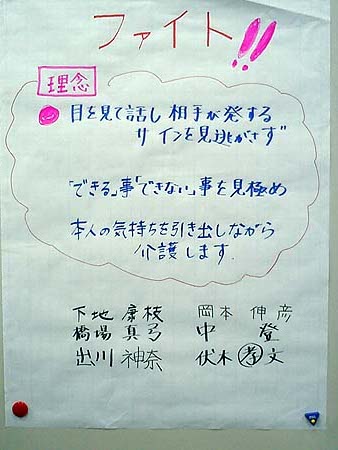 ファイト!!
理念
目を見て話し 相手が発する
サインを見逃がさず
「できる」事「できない」事を見極め
本人の気持ちを引き出しながら
介護します.
下地 康枝 岡本 伸彦
橋場 真弓 中 登
出川 神奈 伏木 孝文